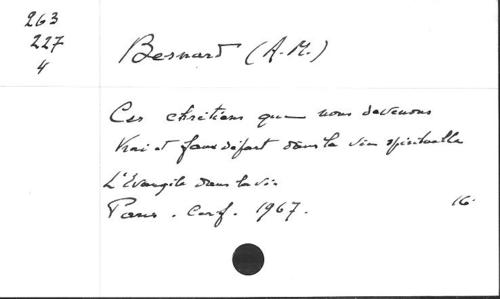 263
227
4
Besnard (A.M.)
Ces chrétiens que nous devenons
Vrai et faux départ dans la vie spirituelle
L'Evangile dans la vie
Paris. Cerf. 1967.
16